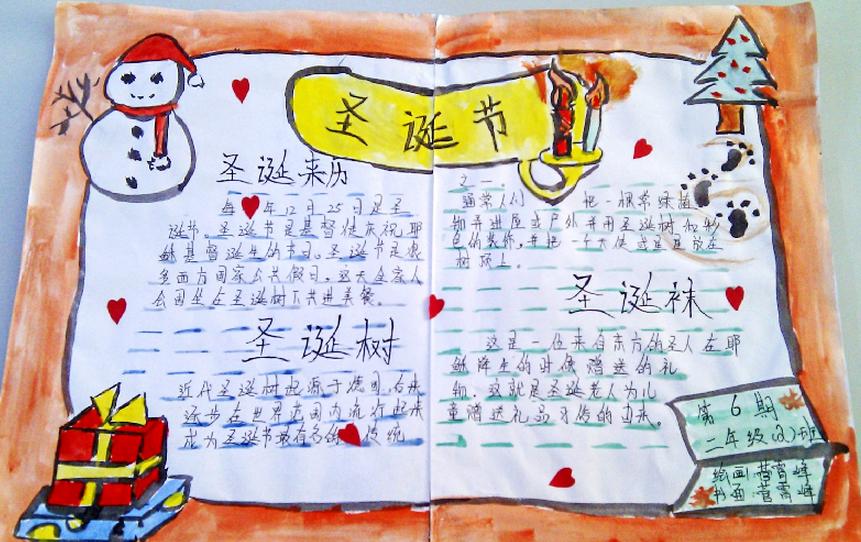 圣诞节
圣诞来历
每年12月25日是圣
诞节。圣诞节是基督徒庆祝耶
稣基督诞生的节日。圣诞节是很
多西方国家公共假日。这天全家人
会围坐在圣诞树下共进美餐。
圣诞树
近代圣诞树起源于德国,后来
逐步在世界范围内流行起来
成为圣诞节最有名的传统
之一。
通常人们 把一根常绿植
物弄进屋或户外并用圣诞树和彩
色的装饰。并把一个天使或星星放在
树顶上。
圣诞袜
这是一位来自东方的圣人在耶
稣降生的时候赠送的礼
物。这就是圣诞老人为儿
童赠送礼品习俗的由来。
第6期
二年级(2)班
绘画:霄峰
书画:霄峰